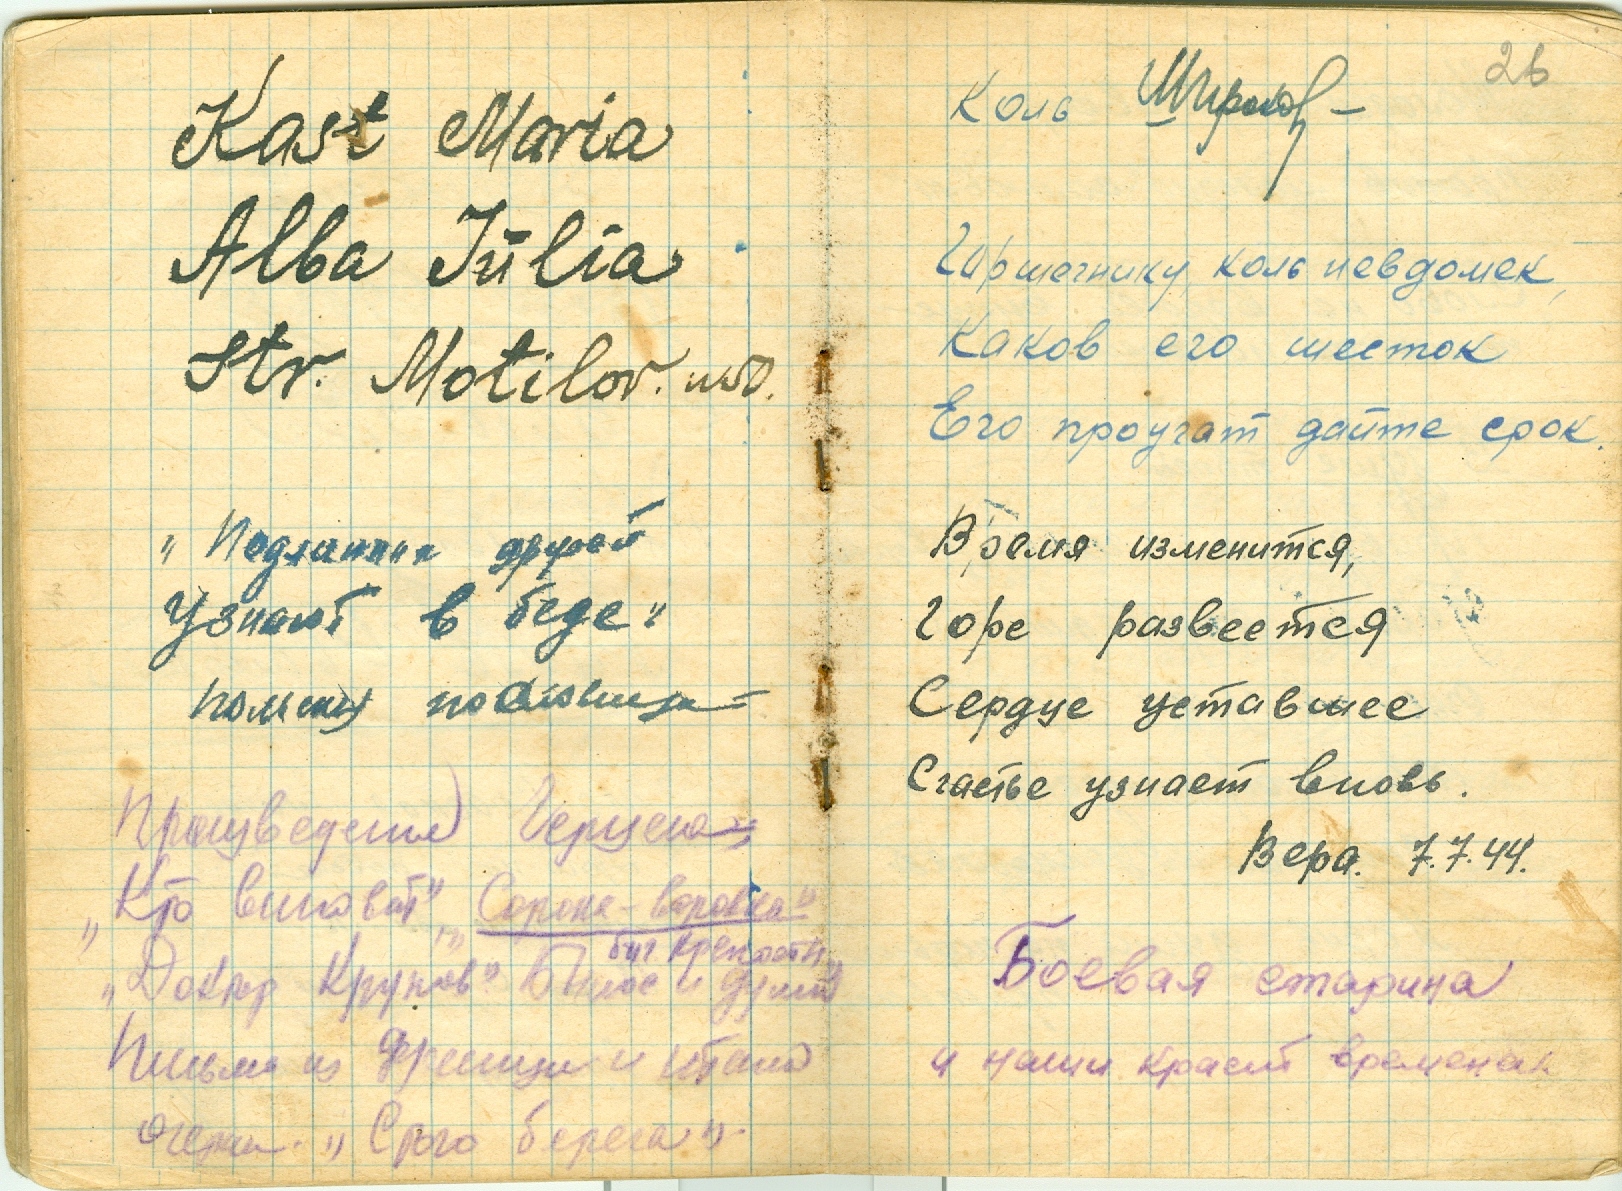 Kast Maria
Alba Iulia
Str. Motilor.
„Подлинных друзей
узнают в беде"
Произведения Герцена
„Кто виноват", „Сорока-воровка"
„Доктор Крупов" Былое и думы
Письма из Франции и
очерки. „С того берега".
26
Коль
Горшечнику, коль невдомек,
Каков его шесток
Его проучат дайте срок.
Время изменится,
Горе развеется
Сердце уставшее
Счастье узнает вновь.
Вера. 7.7.44.
Боевая старина
и наши красит времена